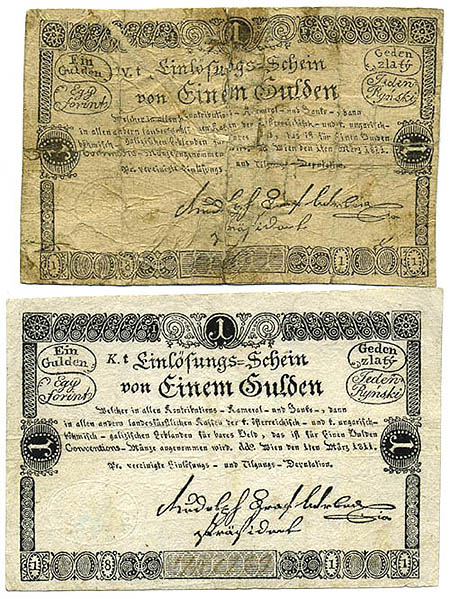 1
Ein
Gulden
Egy
forint
Geden
zlatý
Jeden
Rynski
K. t Einlösungs=Schein
von Einem Gulden
Welcher in allen Kontributions-, Kameral- und Banko-, dann
in allen andern landesfürstlichen Kassen der österreichisch- und t. ungarisch-
böhmisch- galizischen Erblanden für bares Geld, das ist für Einen Gulden
Conventions-Münze angenommen wird. Wien den 1ten März 1811.
Pr. vereinigte Einlösungs- und Tilgungs-Deputation.
Rudolph Graf
Präsident
1
Ein
Gulden
Egy
forint
Geden
zlatý
Jeden
Rynski
K. t Einlösungs=Schein
von Einem Gulden
Welcher in allen Kontributions-, Kameral- und Banko-, dann
in allen andern landesfürstlichen Kassen der t. österreichisch- und t. ungarisch-
böhmisch- galizischen Erblanden für bares Geld, das ist für Einen Gulden
Conventions-Münze angenommen wird. Wien den 1ten März 1811.
Pr. vereinigte Einlösungs- und Tilgungs-Deputation.
Rudolph Graf
Präsident
1 8 1 1